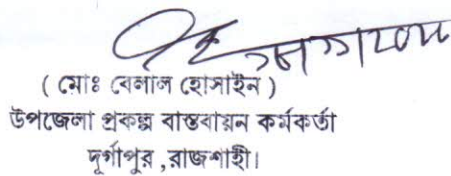 ( মোঃ বেলাল হোসাইন )
উপজেলা প্রকল্প বাস্তবায়ন কর্মকর্তা
দূর্গাপুর ,রাজশাহী।